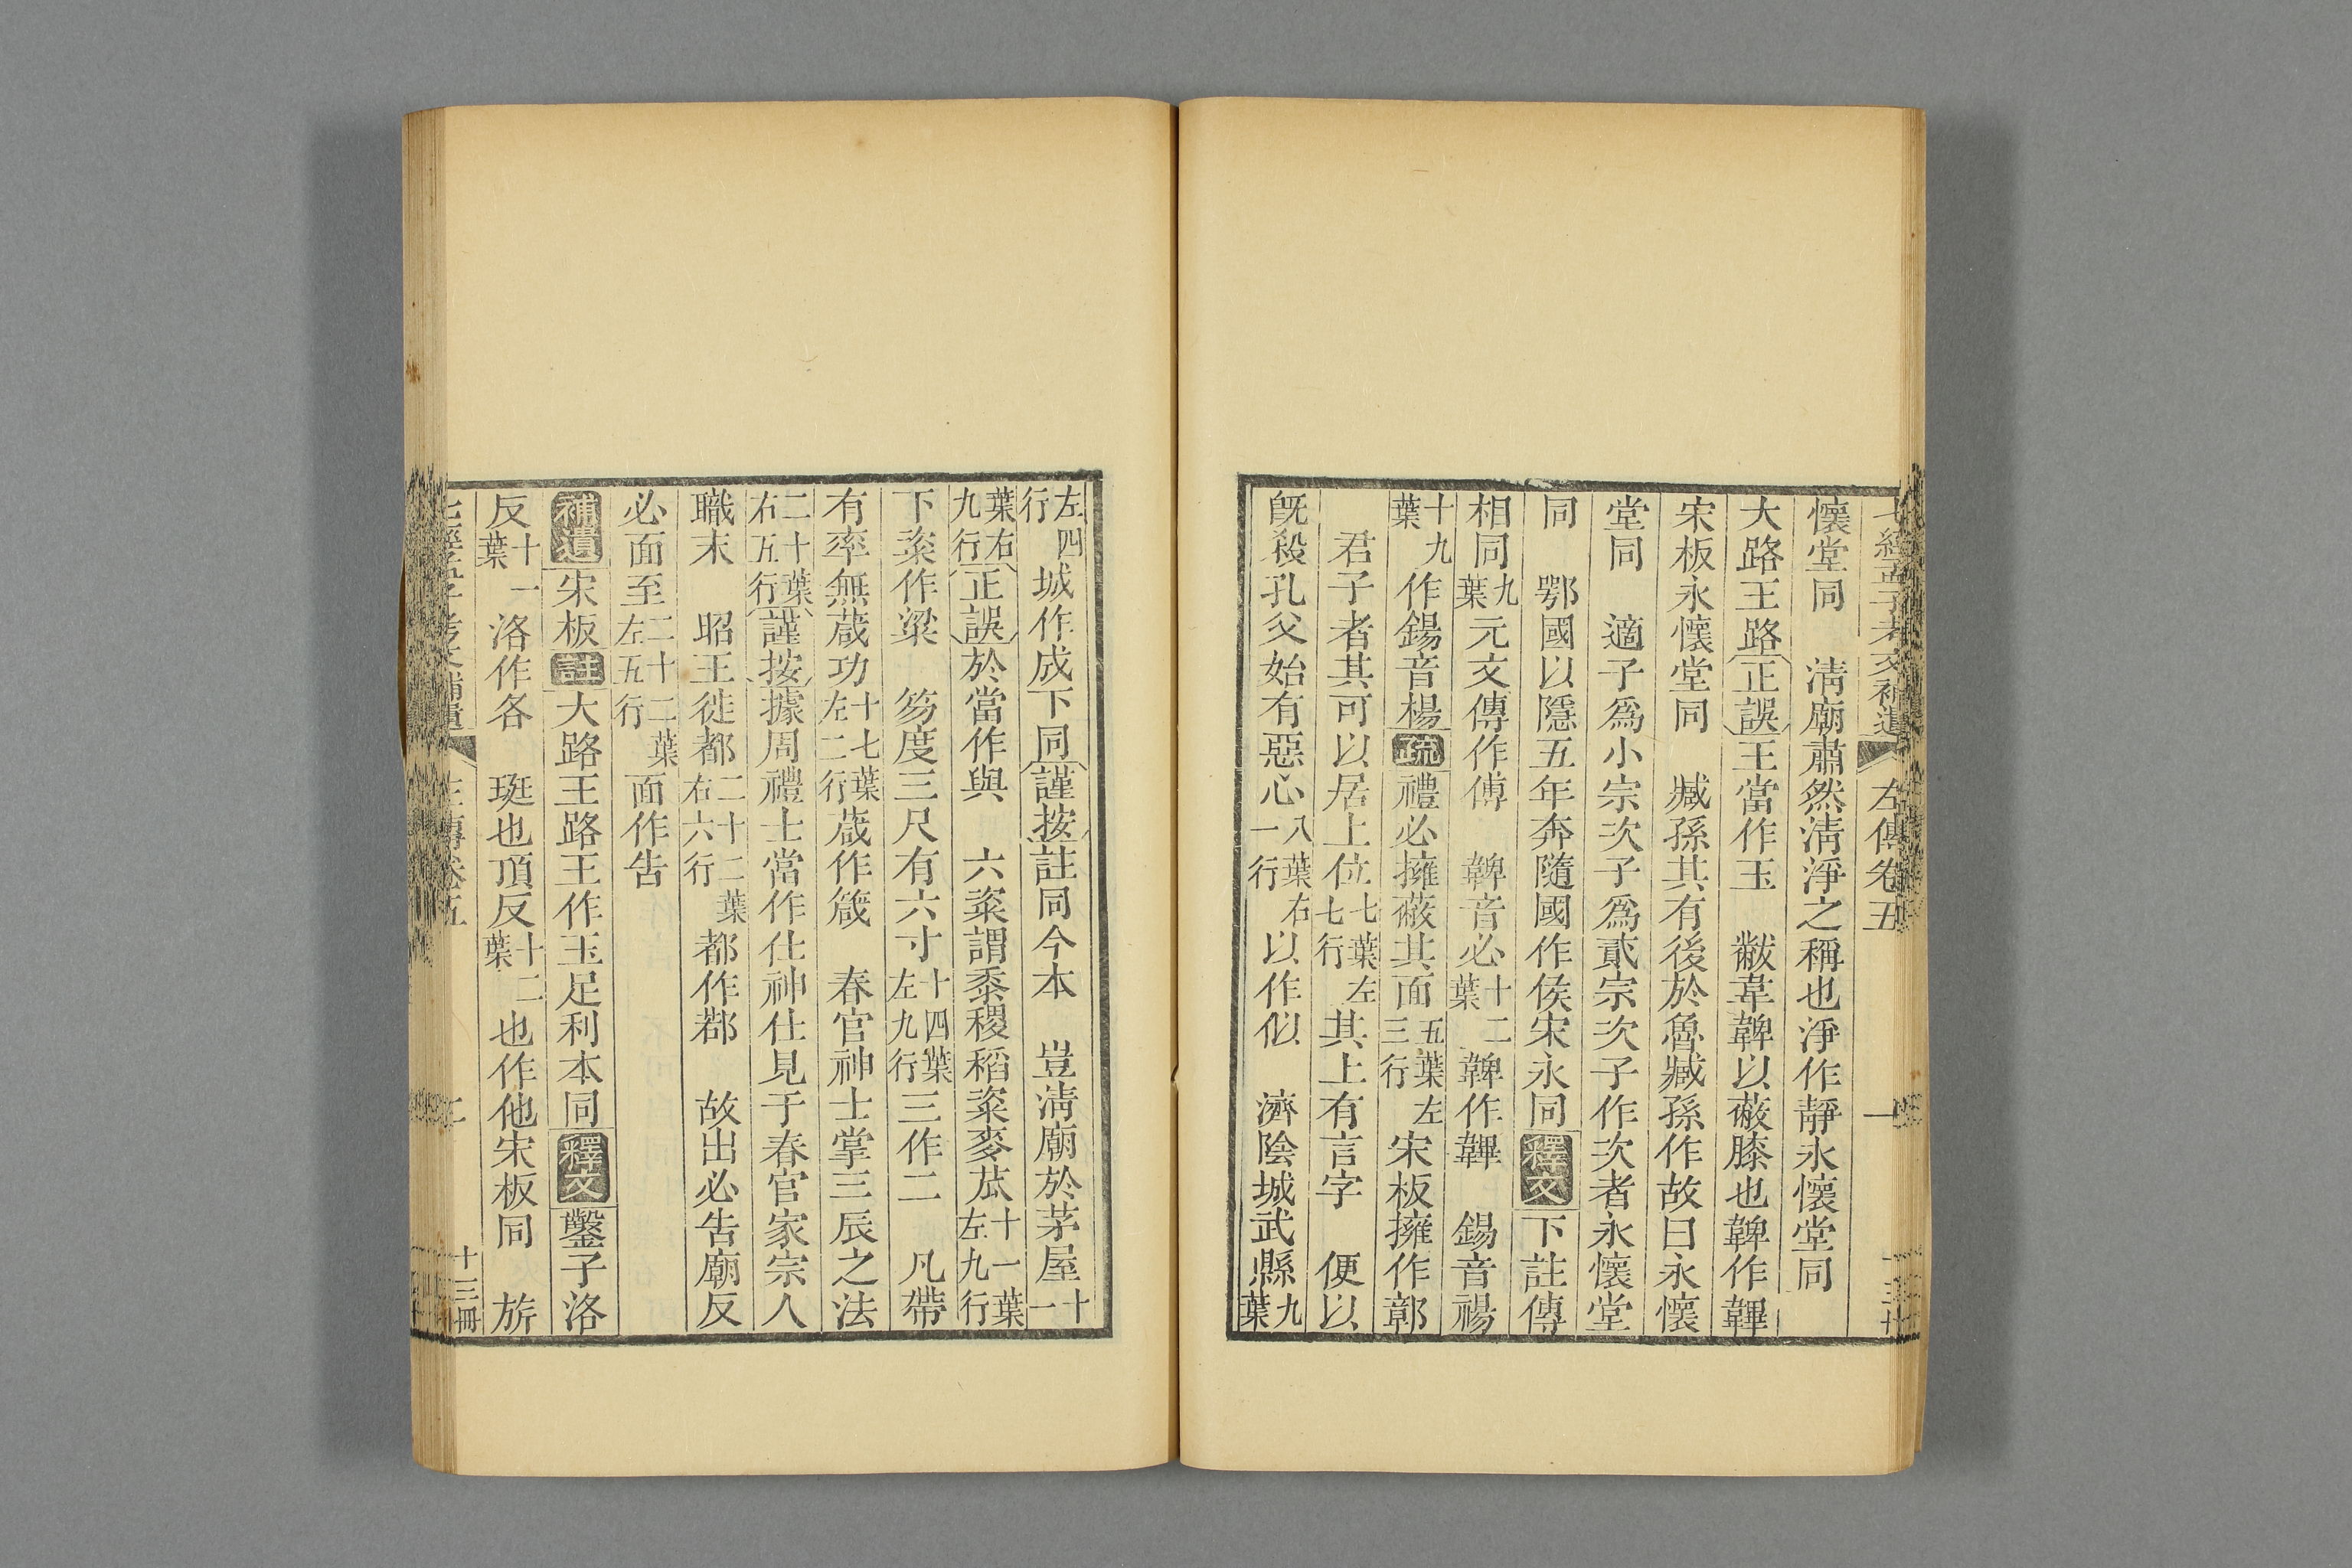 七經孟子考文補遺 左傳卷五 一
懷堂同 淸廟肅然淸淨之稱也淨作靜永懷堂同
大路王路正誤王當作玉 黻韋韠以蔽膝也韠作鞸
宋板永懷堂同 臧孫其有後於魯臧孫作故曰永懷
堂同 適子爲小宗次子爲貳宗次子作次者永懷堂
同 鄂國以隱五年奔隨國作侯宋永同釋文下註傳
相同九葉元文傳作傅 鞞音必十二葉鞞作鞸 鍚音禓
十九葉作鍚音楊疏禮必擁蔽其面五葉左三行宋板擁作鄣
君子者其可以居上位七葉左七行其上有言字 便以
旣殺孔父始有惡心八葉右一行以作似 濟陰城武縣九葉
左四行城作成下同謹按註同今本 豈淸廟於茅屋十一
葉右九行正誤於當作與 六粢謂黍稷稻粢麥苽十一葉左九行
下粢作粱 笏度三尺有六寸十四葉左九行三作二 凡帶
有率無葴功十七葉左二行葴作箴 春官神士掌三辰之法
二十葉右五行謹按據周禮士當作仕神仕見于春官家宗人
職末 昭王徙都二十二葉右六行都作鄀 故出必告廟反
必面至二十二葉左五行面作告
補遺宋板註大路王路王作玉足利本同釋文鑿子洛
反十一葉洛作各 珽也頂反十二葉也作他宋板同 旂
七經孟子考文補遺 左傳卷五 二 十三冊